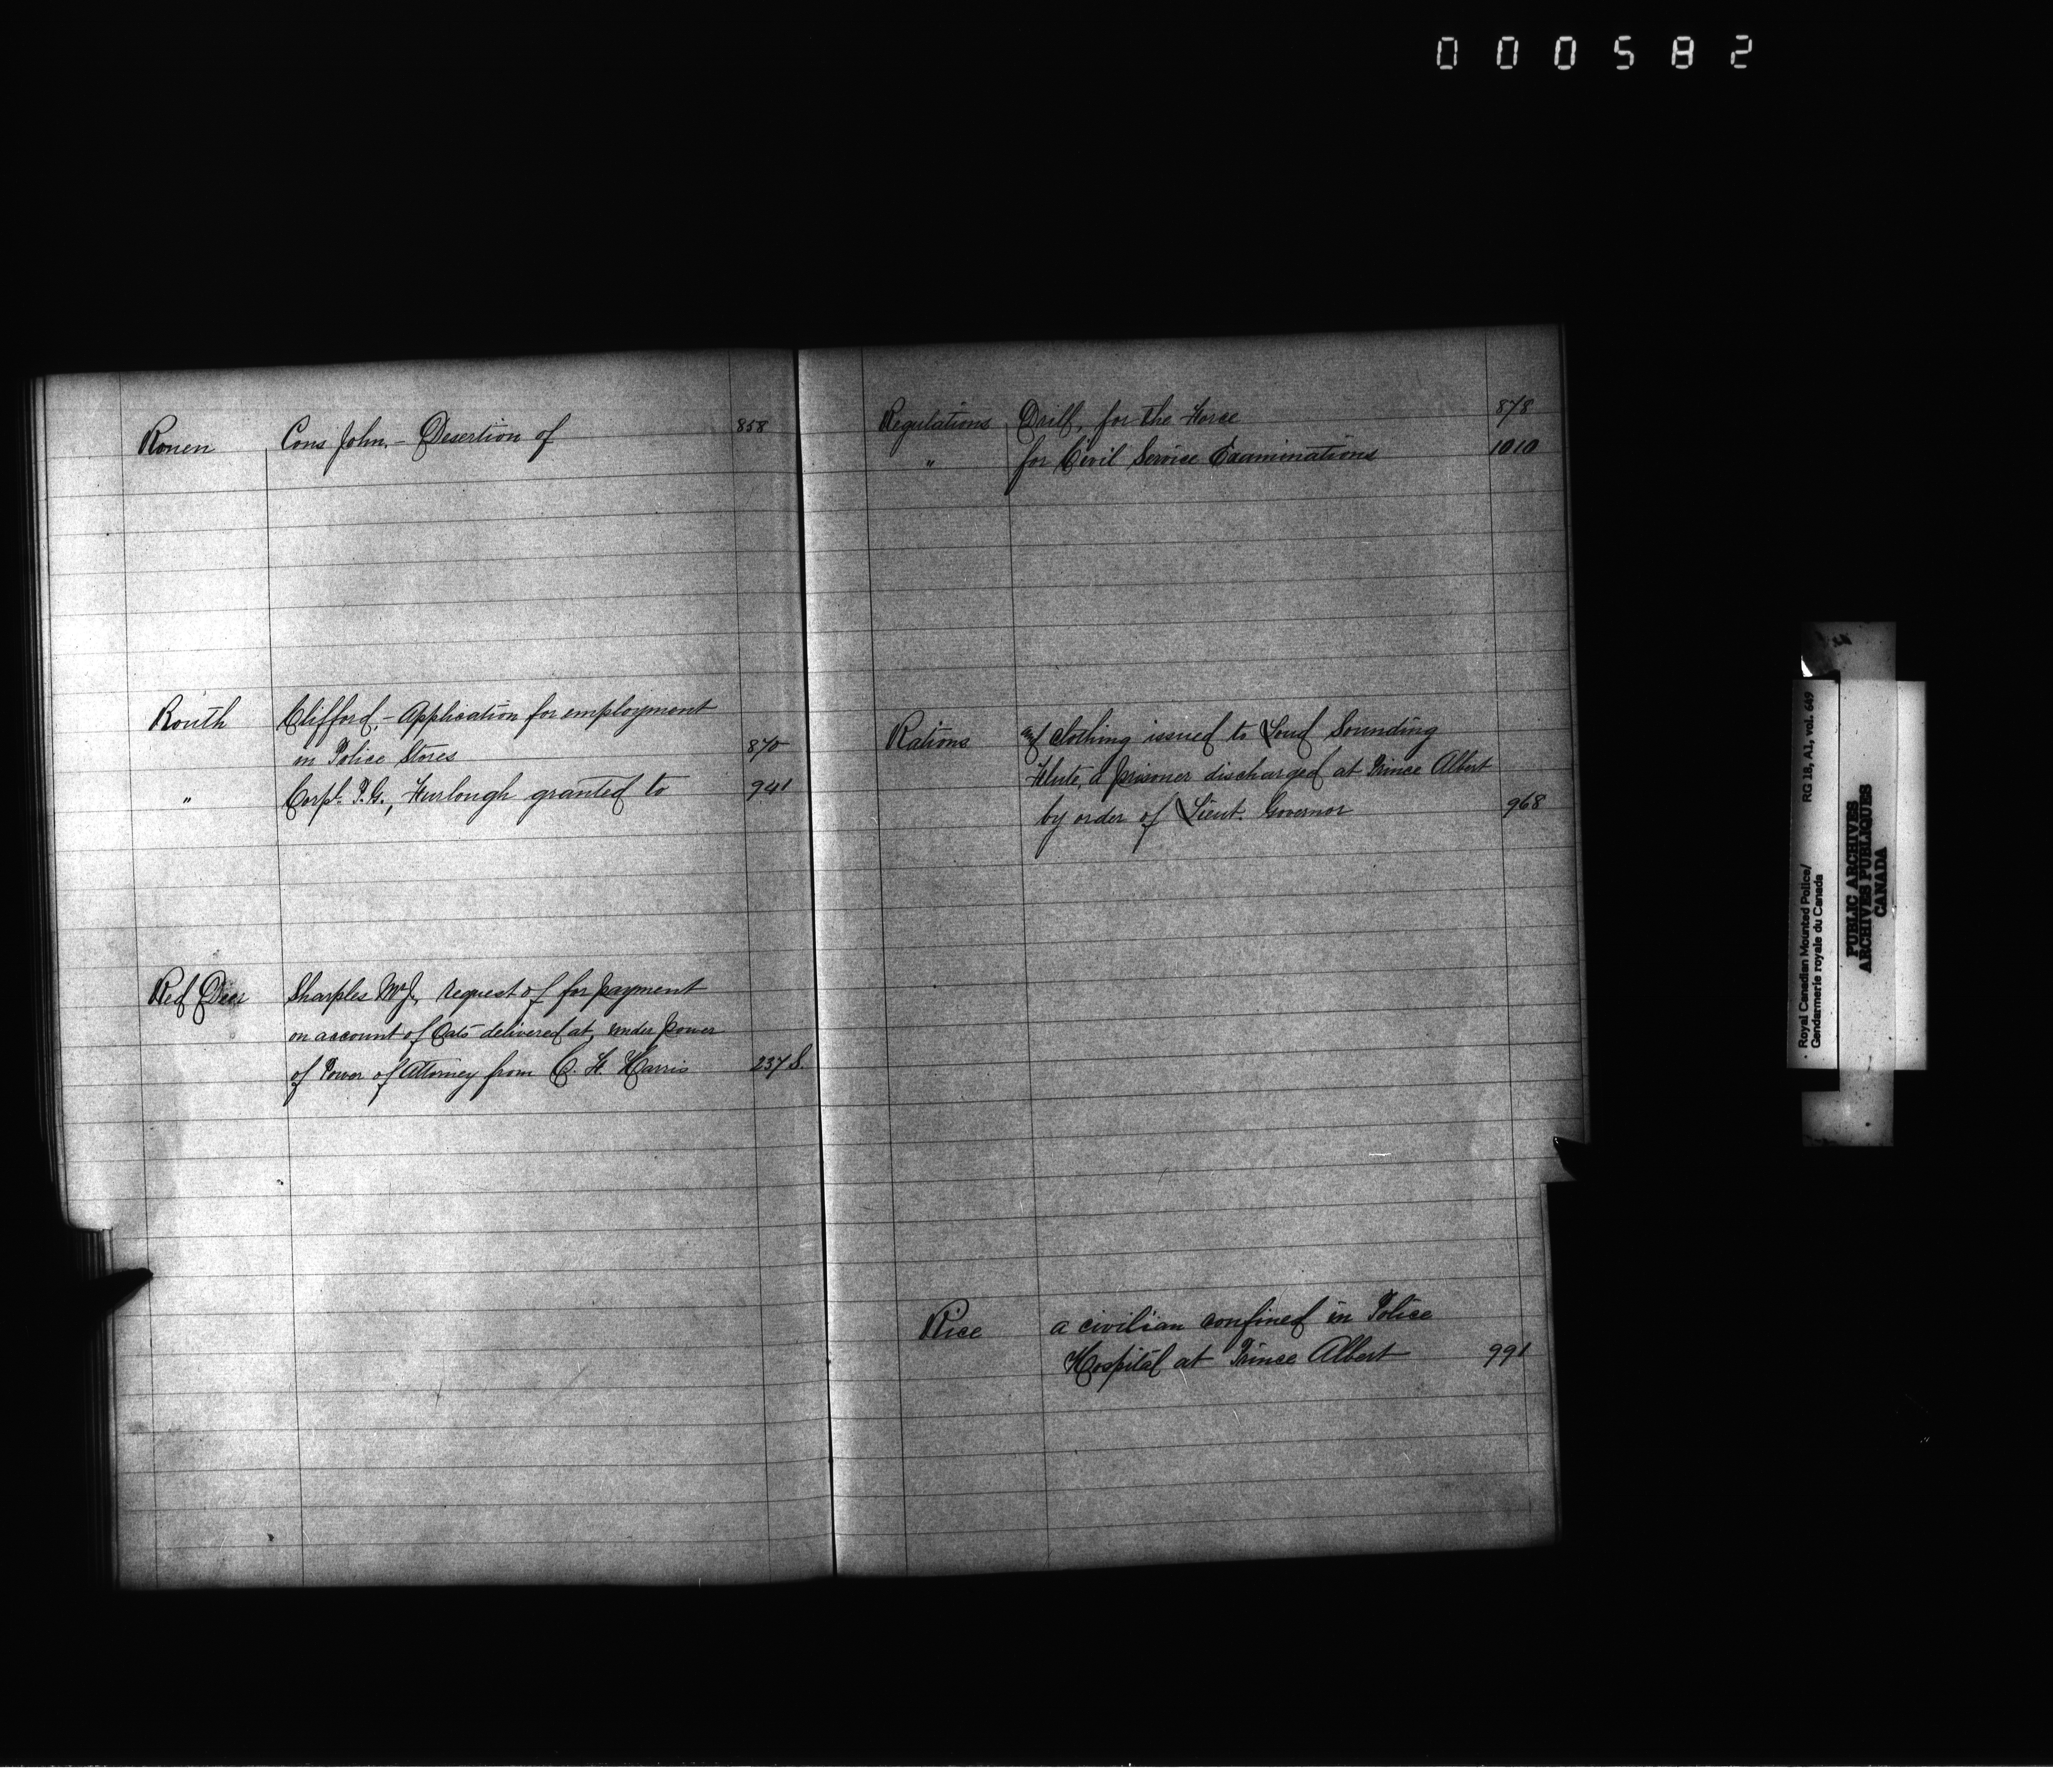 000582
Ronen Cons John, - Desertion of 858
Routh Clifford, - Application for employment
in Police Stores 870
" Corpl. P.G., Furlough granted to 941
Red Deer Sharples Wm J., request of for payment
on account of Oats delivered at, under power
of Power of Attorney from C. H. Harris 237 S.
Regulations Drill, for the Force 878
" for Civil Service Examinations 1010
Rations and clothing issued to Loud Sounding
Flute, a prisoner discharged at Prince Albert
by order of Lieut. Governor 968
Rice a civilian confined in Police
Hospital at Prince Albert 991
Royal Canadian Mounted Police/ RG 18, A1, vol. 649
Gendarmerie royale du Canada
PUBLIC ARCHIVES
ARCHIVES PUBLIQUES
CANADA